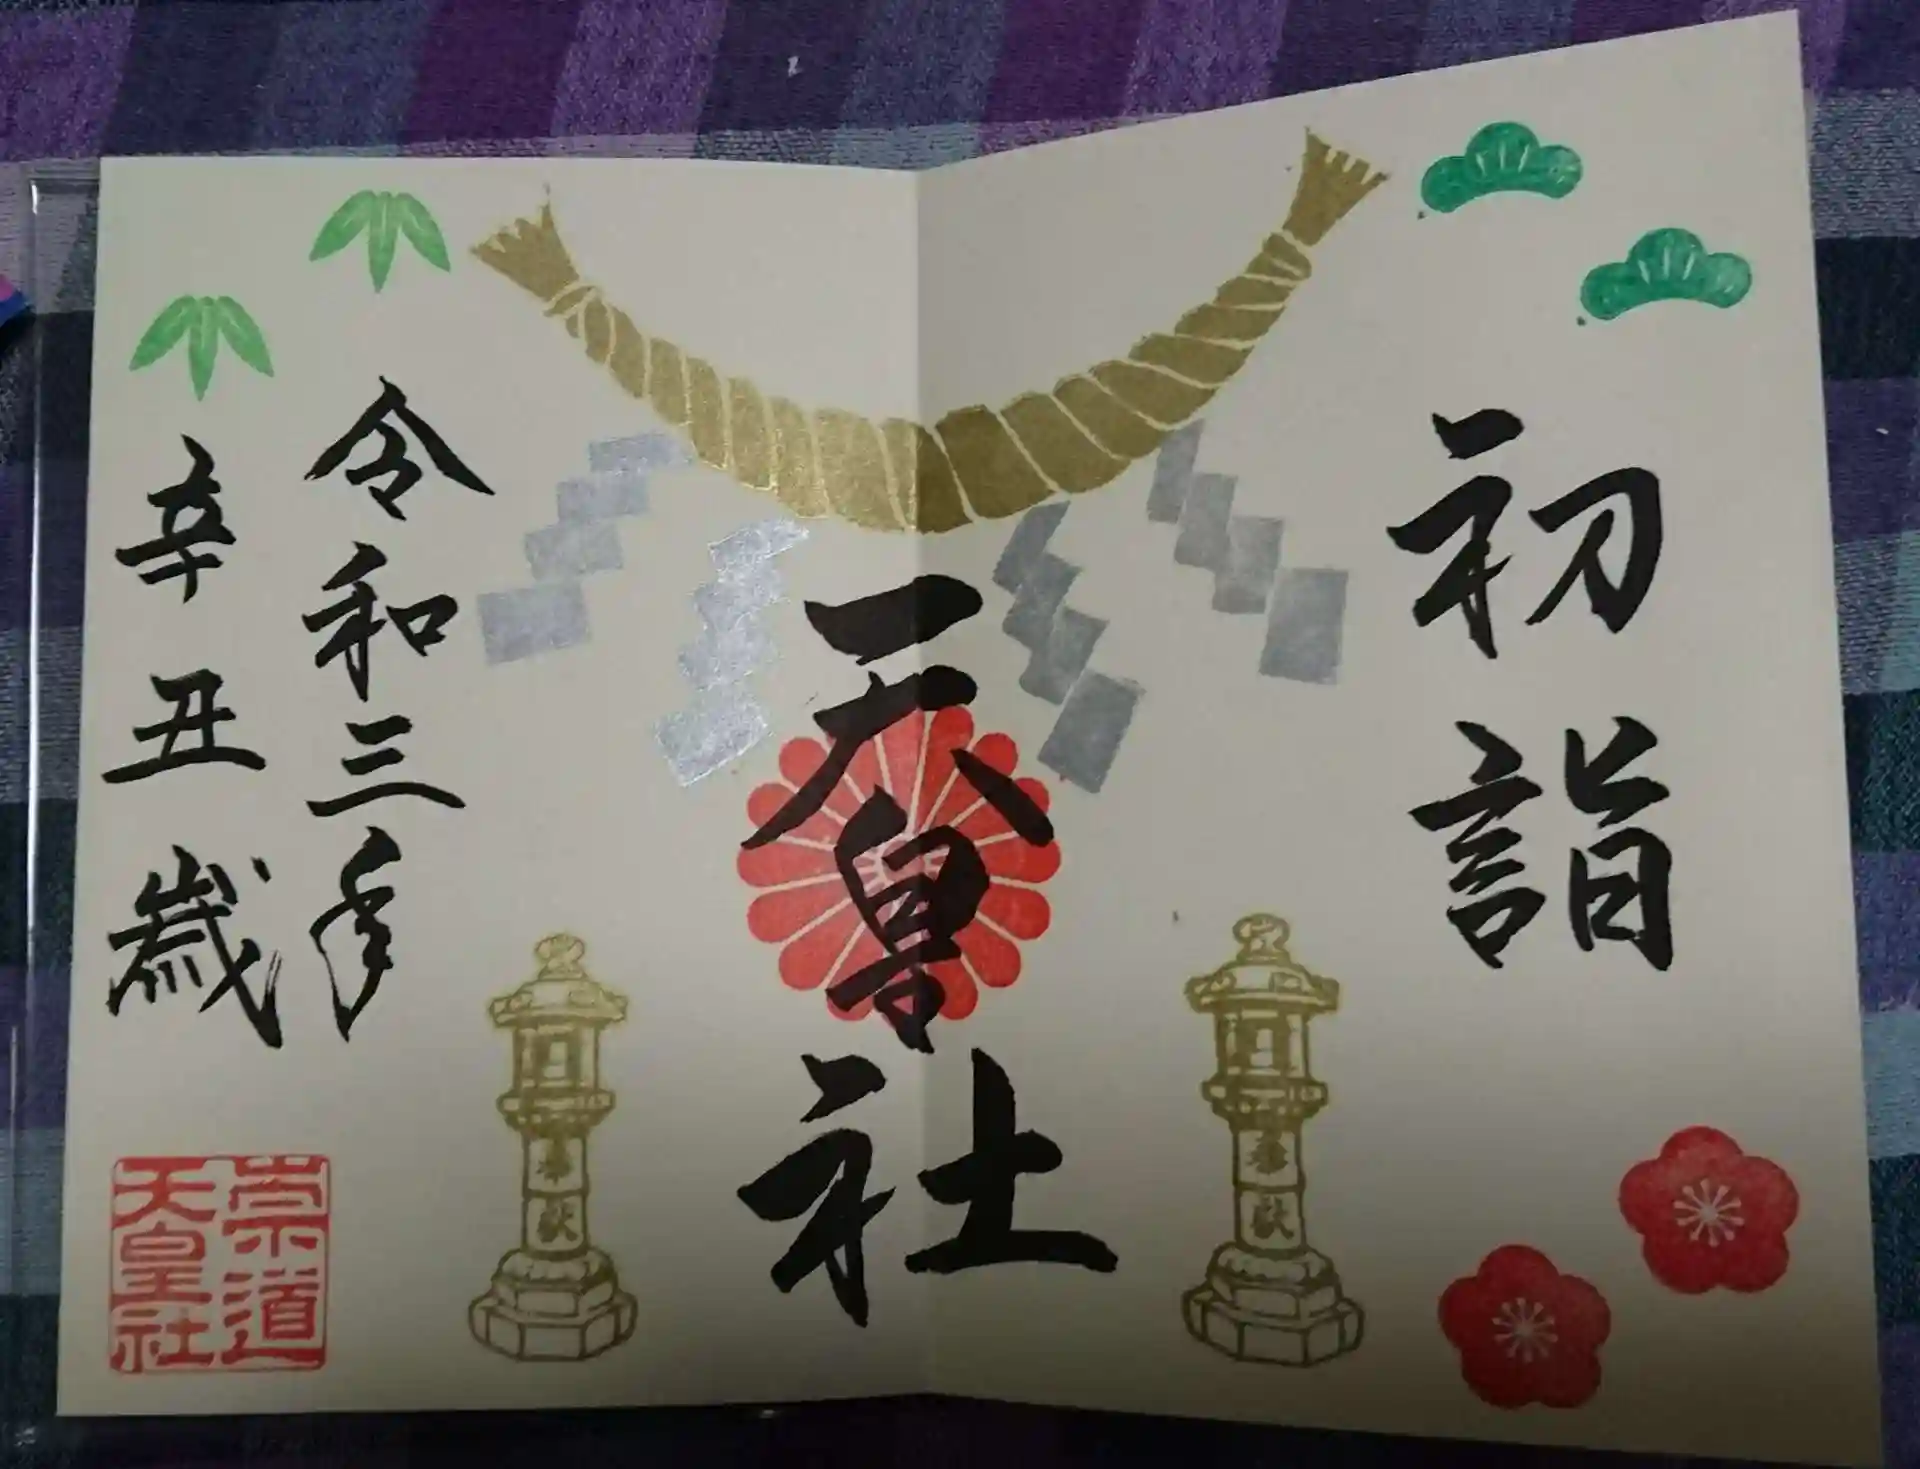 初詣
一天皇社
令和三年
辛丑歳
奉献
奉献
崇道
天皇社